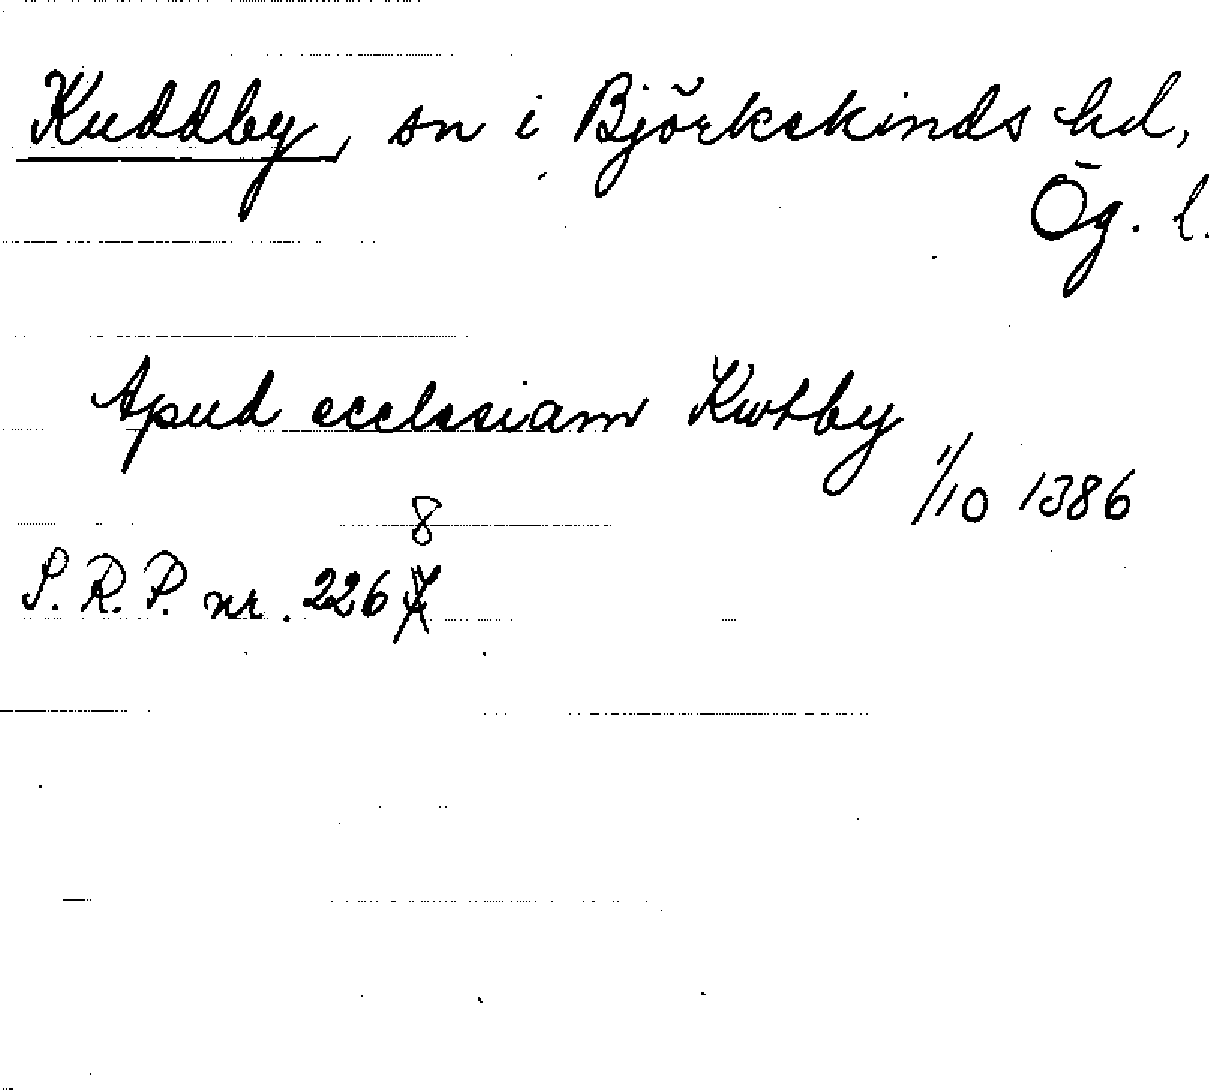 Kuddby, sn i Björkekinds hd,
Ög. l.
Apud ecclesiam Kwtby
1/10 1386
8
S.R.P. nr. 226